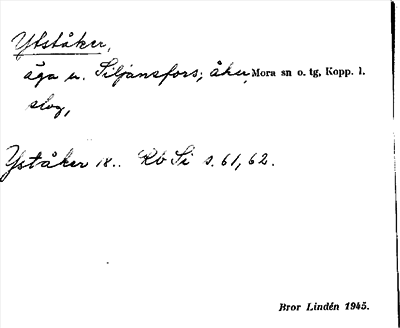 Ytståker,
äga u. Siljansfors; åker, Mora sn o. tg, Kopp. l.
skog,
Yståker 18.. Rb Si s. 61, 62.
Bror Lindén 1945.